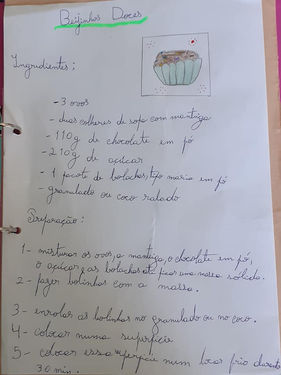 Beijinhos Doces
Ingredientes:
- 3 ovos
- duas colheres de sopa com manteiga
- 110g de chocolate em pó
- 210g de açúcar
- 1 pacote de bolachas, tipo maria em pó
- granulado ou coco ralado
Preparação:
1- misturar os ovos, a manteiga, o chocolate em pó,
o açúcar e as bolachas até ficar uma massa sólida.
2- fazer bolinhas com a massa.
3- enrolar as bolinhas no granulado ou no coco.
4- colocar numa superfície
5- colocar essa superfície num local frio durante
30 min.